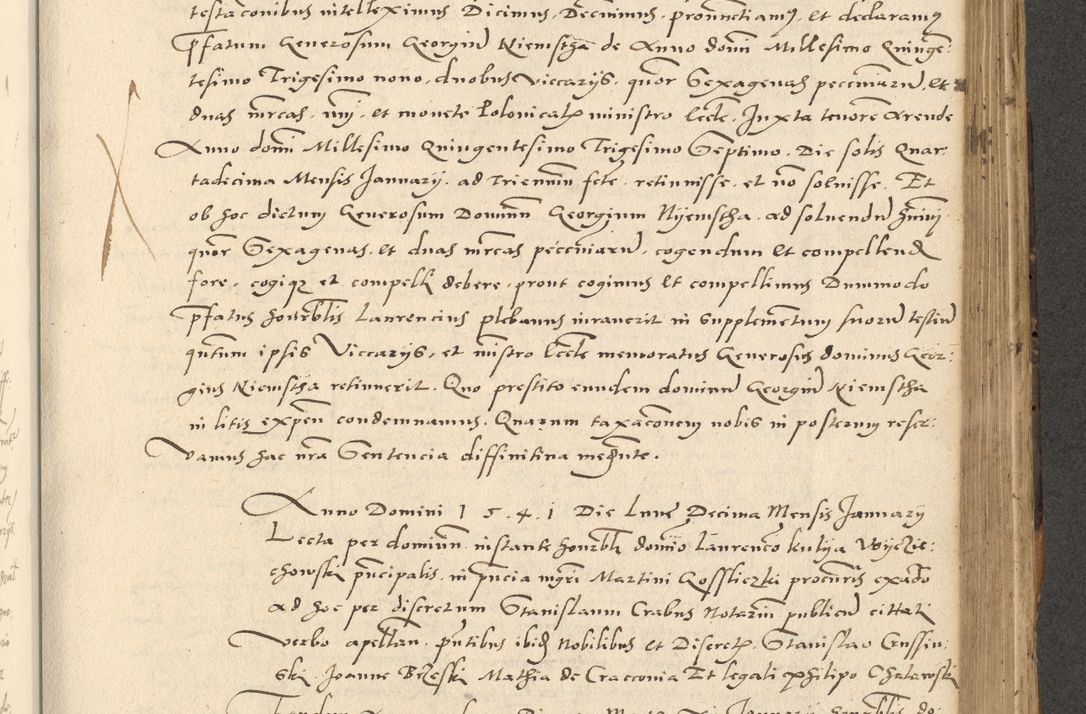 testaconibus intelleximus Dicimus, Decrnimus, pronunctiamq, et declaramq
pfatum Generosum Georgiu Niemstha de Anno domi Millesimo Quinge:
tesimo Trigesimo nono, duobus viccarys, quor Sexagenas pecciniaru, et
duas mrcas, et monete Polonicalx ministro Eccle, Juxta tenore Arende
Anno domi Millesimo Quingentesimo Trigesimo Septimo, Die solis Quar:
tadecima Mensis Januarij, ad Trienniu fcte, retinuisse, et no soluisse. Et
ob hoc dictum Generosum Dominum Georgium Nijemstha, ad soluendu
quor Sexagenas, et duas mrcas pecciniaru, cogendum et compellend
fore, cogiq et compelli debere, prout cogimus et compellimus Dummodo
pfatus honrblis Laurencius plebanus iurauerit in supplementum suoru testiu
quntum ipsis Viccarys, et mistro Eccle memoratus Generosus dominus Geor:
gius Niemstha retinuerit. Quo prestito eundem dominu Georgiu Niemstha
in litis expen condemnamus. Quarum taxaconem nobis in posterum reser:
vamus hac nra Sentencia diffinitiua
Anno Domini 1 5 4 1 Die Lune Decima Mensis Januarij
Lecta per dominum, instante honrbli domio Laurenco kulija Wijczie:
chowski pncipalis, in pncia mgri Martini Gossliczki procuris
ad hoc per discretum Stanislaum Crabus Notariu publicu citati
verbo apellan, pntibus ibid Nobilibus et Discretx Stanislao Cussin:
ski, Joanne Brzeski Mathia de Cracconia Et legali philipo Chatawski